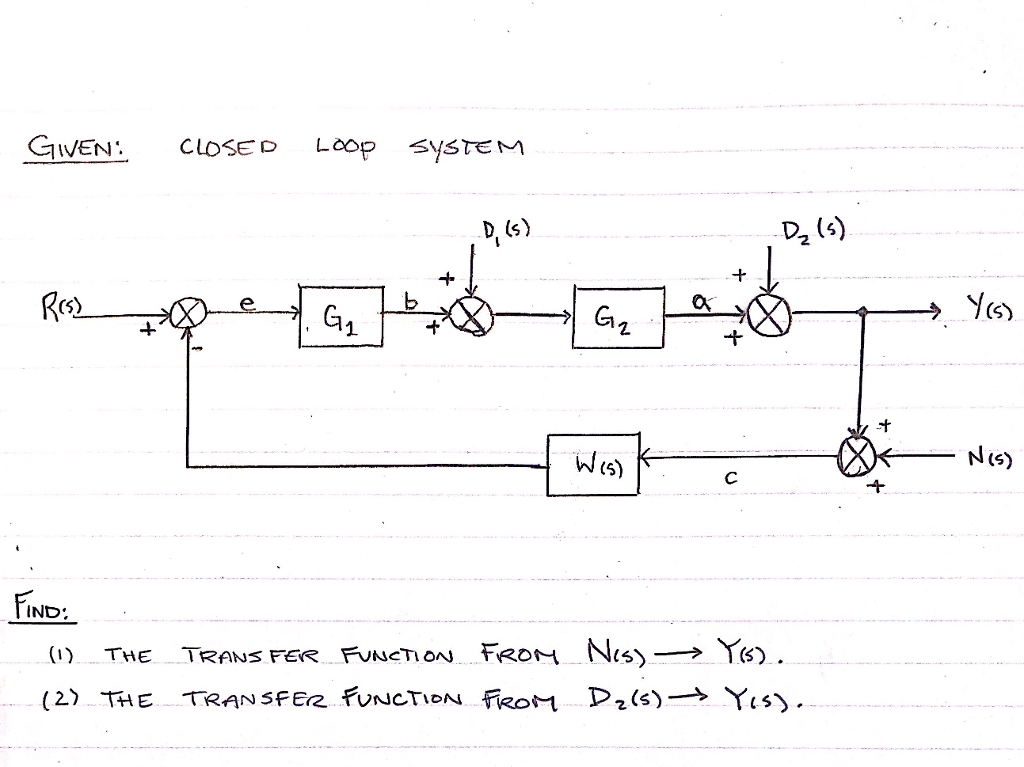 GIVEN: CLOSED LOOP SYSTEM
D₁(s) D₂(s)
+ +
R(s) e G₁ b G₂ a Y(s)
+ + +
-
+
W(s) c N(s)
+
FIND:
(1) THE TRANSFER FUNCTION FROM N(s) → Y(s).
(2) THE TRANSFER FUNCTION FROM D₂(s) → Y(s).